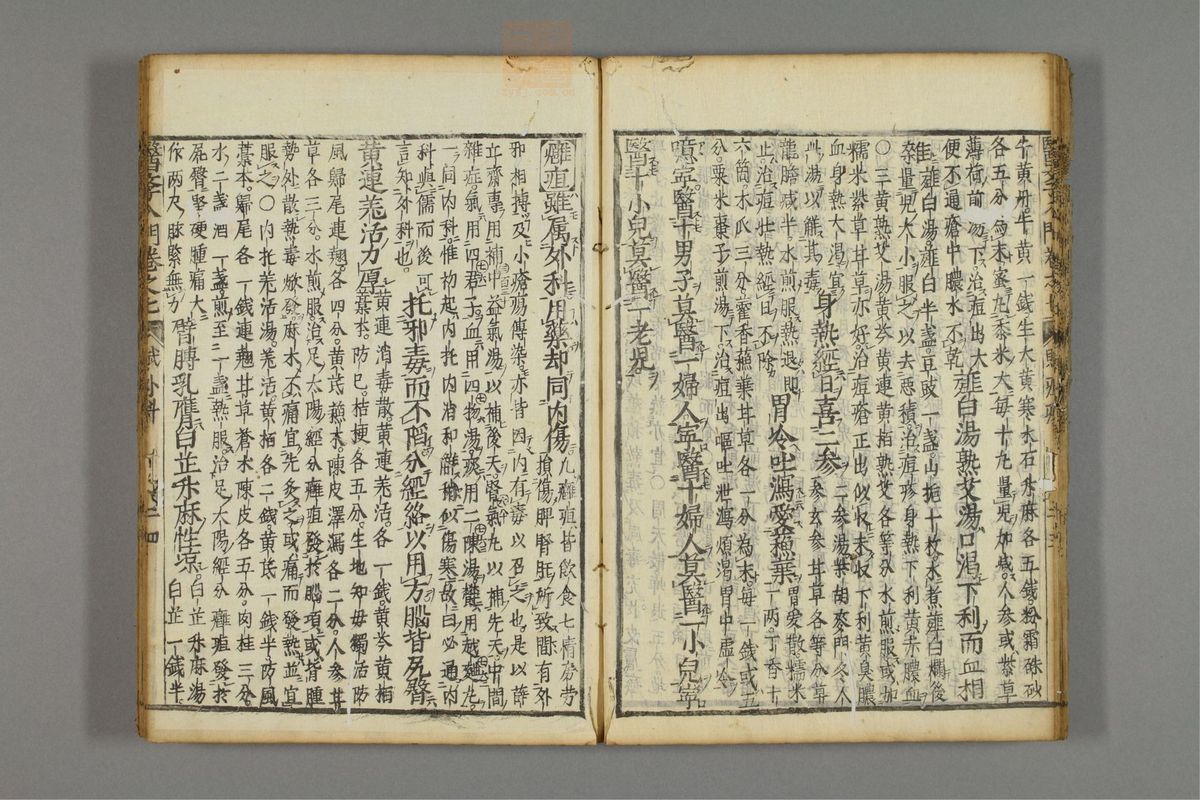 牛黃丹 牛黃一錢生大黃寒水石升麻各五錢粉霜硃砂
各五分爲末蜜丸黍米大毎十九量児加减人参或紫草
薄荷煎湯下治痘出大
便不通瘡中膿水不乾
薤白湯熟艾湯口渴下利而血相
雜 薤白湯薤白半盞豆豉一盞山梔十枚水煮薤白爛後
量児大小服之以去惡積治痘疹身熱下利黃赤膿血
〇三黃熟艾湯黃芩黃連黃栢熟艾各等分水煎服或加
糯米紫草甘草亦好治痘瘡正出似收未收下利黃臭膿
血身熱大渴宜
此湯以觧其毒
身熱經日喜二參
二参湯柴胡麥門冬人
参玄参甘草各等分草
龍膽减半水煎服熱退即
止治痘壮熱經日不除
胃冷吐瀉愛蘓葉
胃愛散糯米
一兩丁香十
六箇木瓜三分藿香蘓葉甘草各一分為末毎一錢或五
分粟米棗子煎湯下治痘出嘔吐泄瀉煩渴胃中虛冷
噫寧醫十男子莫醫一婦人寧醫十婦人莫醫一小兒寧
醫十小兒莫醫一老児
癰疽雖属外科用藥却同内傷
九癰疽皆飲食七情房劳
損傷脾腎肝所致間有外
邪相搏及小瘡瘍傳染亦皆因内有毒以召之也是以薛
立齋專用補中益氣湯以補後天腎氣丸以補先天中間
雜症氣用四君子血用四物湯痰用二陳湯欝用越麯丸
一同内科惟初起内托内消和觧似傷寒故曰必通内
科與儒而後可
言知外科也
托邪毒而不䧟分經絡以用方腦背尻臀
黃連羗活力原
黃連消毒散黃連羗活各一錢黃芩黃栢
藁本防已桔梗各五分生地知母獨活防
風歸尾連翹各四分黃芪蘓木陳皮澤瀉各二分人参甘
草各三分水煎服治足太陽經分癰疽發於腦項或背腫
勢外散熱毒焮發麻木不痛宜先灸之或痛而發熱並宜
服之〇内托羗活湯羗活黃栢各二錢黃芪一錢半防風
藁本歸尾各一錢連翹甘草蒼术陳皮各五分肉桂三分
水二盞酒一盞煎至一盞熱服治足太陽經分癰疽發於
尻臀堅硬腫痛大
作两尺脉緊無力
臂膊乳膺白芷升麻性凉
白芷升麻湯
白芷一錢半